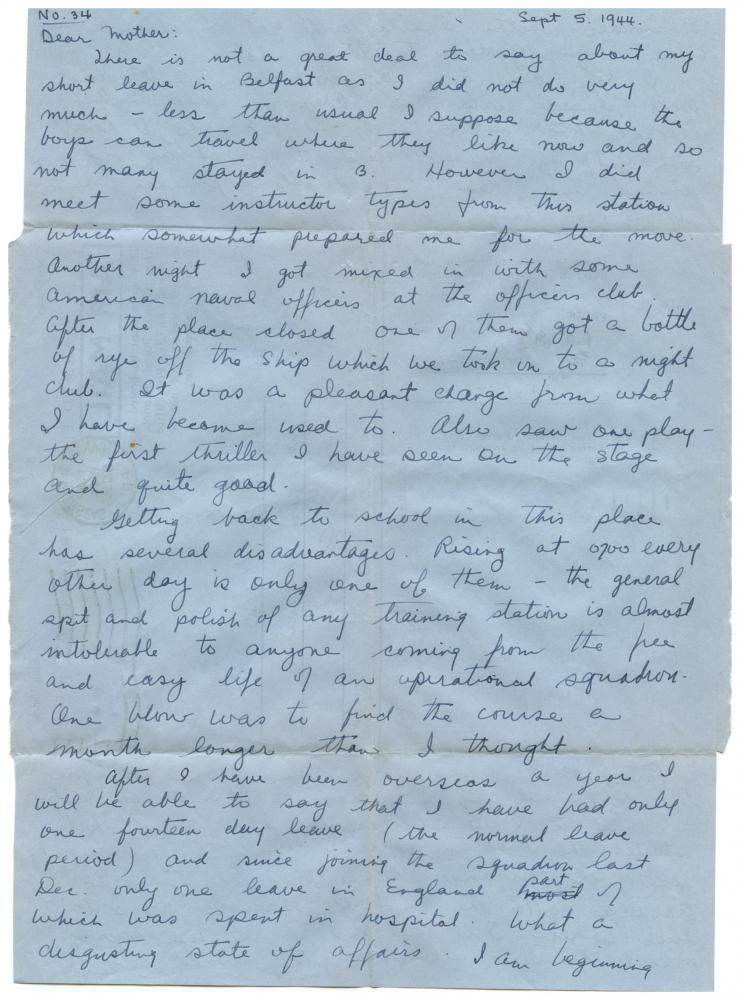 No. 34
Sept 5. 1944.
Dear Mother:
There is not a great deal to say about my
short leave in Belfast as I did not do very
much – less than usual I suppose because the
boys can travel where they like now and so
not many stayed in B. However I did
meet some instructor types from this station
which somewhat prepared me for the move.
Another night I got mixed in with some
American naval officers at the officers club.
After the place closed one of them got a bottle
of rye off the ship which we took on to a night
club. It was a pleasant change from what
I have become used to. Also saw one play –
the first thriller I have seen on the stage
and quite good.
Getting back to school in this place
has several disadvantages. Rising at 0700 every
other day is only one of them – the general
spit and polish of any training station is almost
intolerable to anyone coming from the free
and easy life of an operational squadron.
One blow was to find the course a
month longer than I thought.
After I have been overseas a year I
will be able to say that I have had only
one fourteen day leave (the normal leave
period) and since joining the squadron last
Dec. only one leave in England most part of
which was spent in hospital. What a
disgusting state of affairs. I am beginning